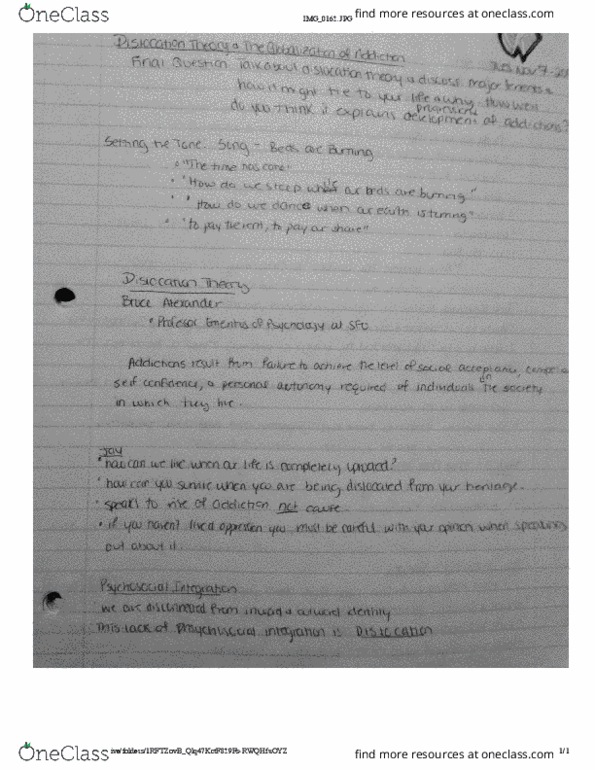 OneClass
IMG_0162.JPG
find more resources at oneclass.com
Dislocation Theory & The Globalization of Addiction
Tues Nov 7
Final Question Talk about dislocation theory & discuss major tenents &
how it might tie to your life away. How well
do you think it explains progression development of addictions?
Setting the Tone. Song - Beds are Burning
• "The time has come"
• "How do we sleep while our beds are burning"
• " How do we dance when our earth is turning"
• "to pay the rent, to pay our share"
Dislocation Theory
Bruce Alexander
• Profesor Emeritus of Psychology at SFU
Addictions result from failure to achieve the level of social acceptance,
self confidence, & personal autonomy required of individuals in the society
in which they live.
Jay
• how can we live when our life is completely uprooted?
• how can you survive when you are being dislocated from your heritage.
• speaks to rise of addiction not cause.
• if you havent lived oppression you must be careful with your opinion when speaking
out about it.
Psychosocial Integration
we are disconnected from individual & cultural identity
This lack of Psychosocial integration is Dislocation
OneClass
find more resources at oneclass.com
1/1